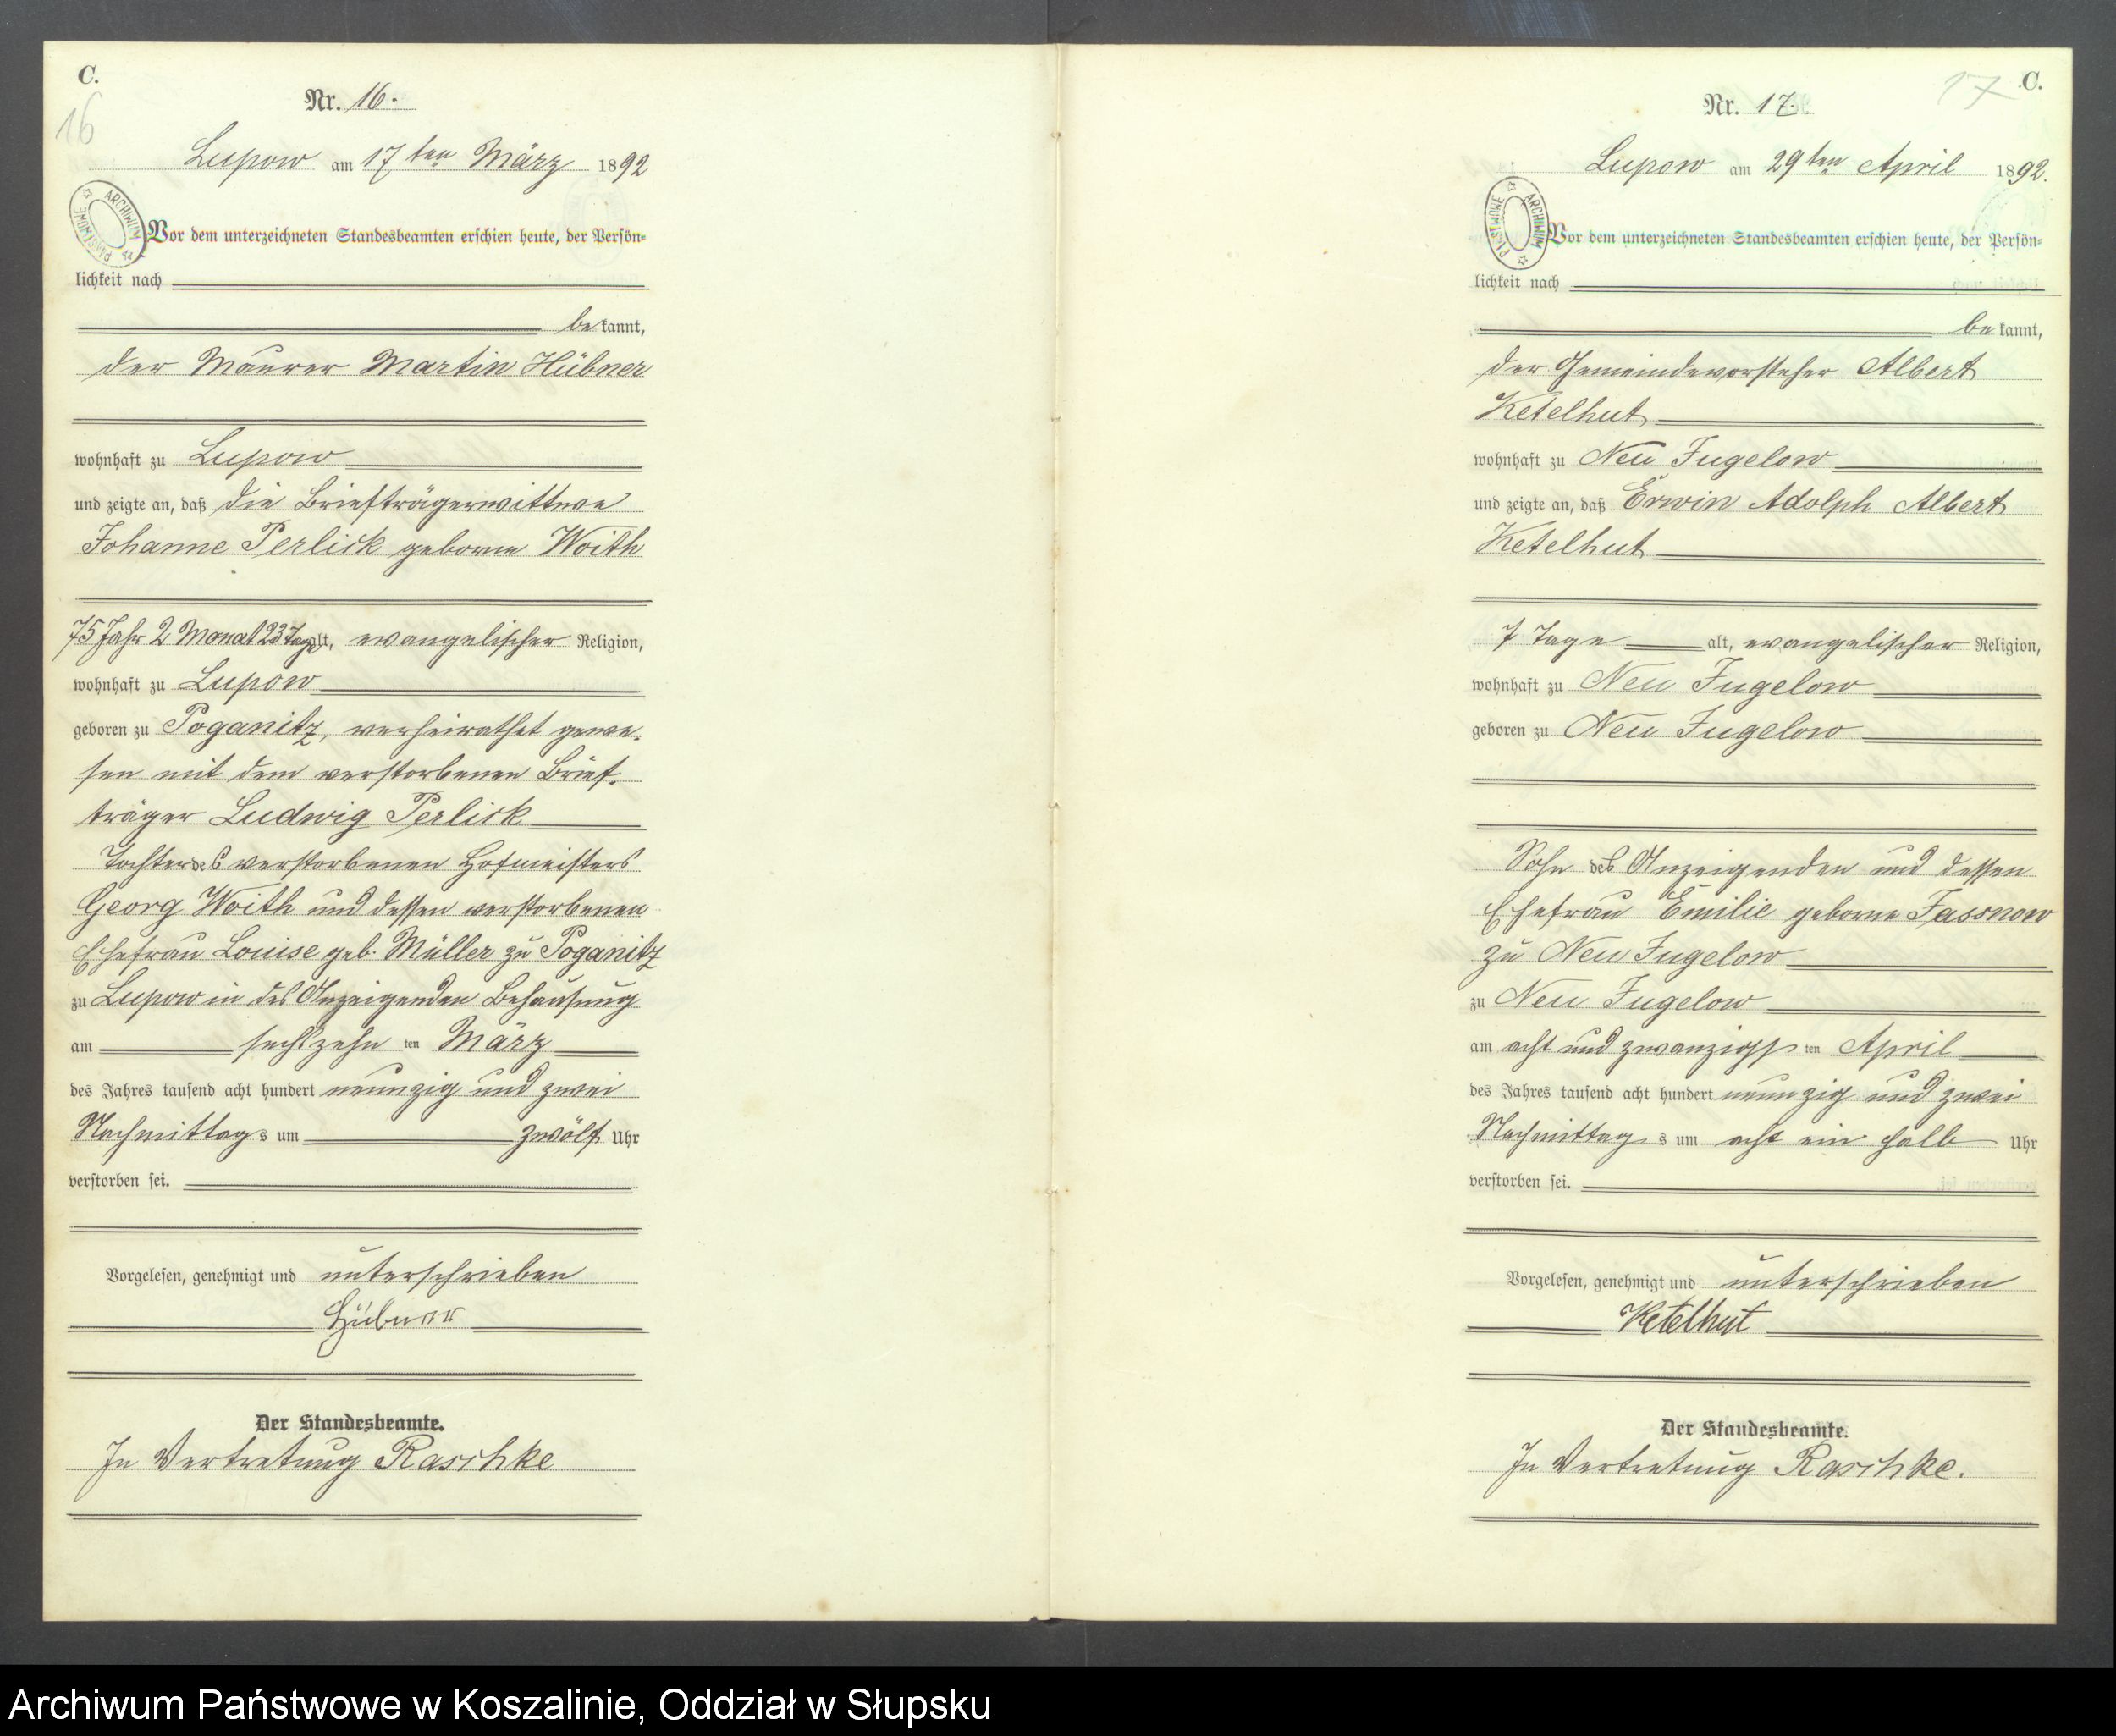 C.
16
Nr. 16.
Lupow am 17ten März 1892
ARCHIWUM PAŃSTWOWE
Vor dem unterzeichneten Standesbeamten erschien heute, der Persön-
lichkeit nach
bekannt,
der Maurer Martin Hübner
wohnhaft zu Lupow
und zeigte an, daß die Briefträgerwittwe
Johanne Perlick geborne Woith
75 Jahr 2 Monat 23 Tage alt, evangelischer Religion,
wohnhaft zu Lupow
geboren zu Poganitz, verheirathet gewe-
sen mit dem verstorbenen Brief-
träger Ludwig Perlick
Tochter des verstorbenen Hofmeisters
Georg Woith und dessen verstorbenen
Ehefrau Louise geb. Müller zu Poganitz
zu Lupow in des Anzeigenden Behausung
am sechszehn ten März
des Jahres tausend acht hundert neunzig und zwei
Nachmittags um zwölf Uhr
verstorben sei.
Vorgelesen, genehmigt und unterschrieben
Hübner
Der Standesbeamte.
In Vertretung Raschke
C.
17
Nr. 17.
Lupow am 29ten April 1892.
ARCHIWUM PAŃSTWOWE
Vor dem unterzeichneten Standesbeamten erschien heute, der Persön-
lichkeit nach
bekannt,
der Gemeindevorsteher Albert
Ketelhut
wohnhaft zu Neu Jugelow
und zeigte an, daß Erwin Adolph Albert
Ketelhut
7 Tage alt, evangelischer Religion,
wohnhaft zu Neu Jugelow
geboren zu Neu Jugelow
Sohn des Anzeigenden und dessen
Ehefrau Emilie geborne Jassnow
zu Neu Jugelow
zu Neu Jugelow
am acht und zwanzigsten April
des Jahres tausend acht hundert neunzig und zwei
Nachmittags um acht ein halb Uhr
verstorben sei.
Vorgelesen, genehmigt und unterschrieben
Ketelhut
Der Standesbeamte.
In Vertretung Raschke.
Archiwum Państwowe w Koszalinie, Oddział w Słupsku